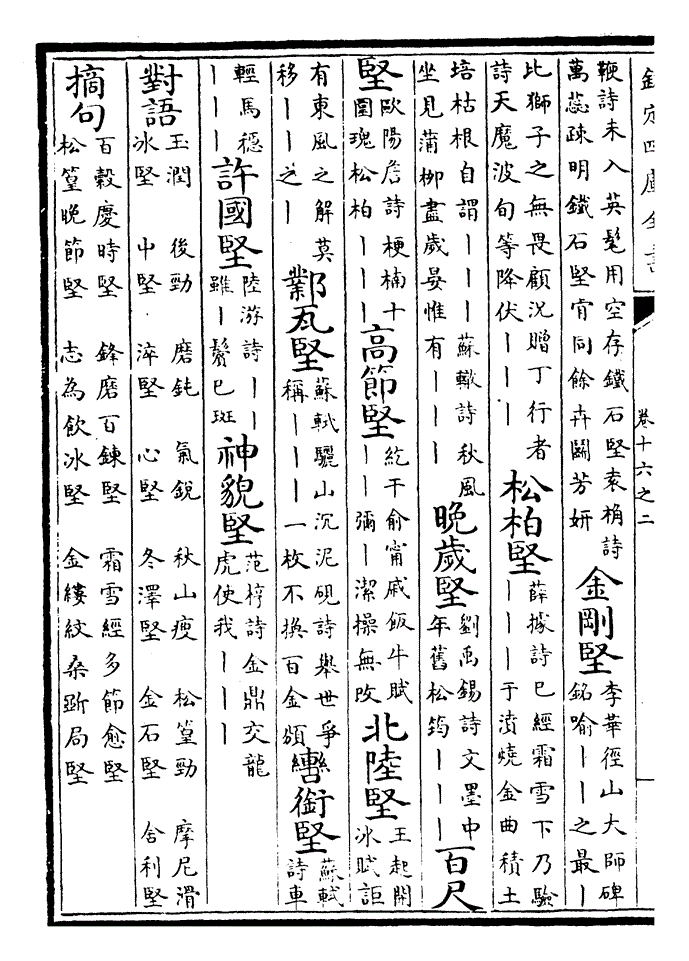 欽定四庫全書 卷十六之二
鞭詩未入英髦用空存鐵石堅袁桷詩萬蕊疎明鐵石堅肯同餘卉鬭芳妍 金剛堅 李華徑山大師碑銘喻｜｜之最｜
比獅子之無畏顧況贈丁行者詩天魔波旬等降伏｜｜｜ 松柏堅 薛據詩已經霜雪下乃驗｜｜｜于濆燒金曲積土
培枯根自謂｜｜｜蘇轍詩秋風坐見蒲柳盡歲晏惟有｜｜｜ 晚歲堅 劉禹錫詩文墨中年舊松筠｜｜｜ 百尺
堅 歐陽詹詩梗楠十圍瑰松柏｜｜｜ 高節堅 紇干俞甯戚飯牛賦｜｜彌｜潔操無改 北陸堅 王起開冰賦詎
有東風之解莫移｜｜之｜ 鄴瓦堅 蘇軾驪山沉泥硯詩舉世爭稱｜｜｜一枚不換百金頒 轡銜堅 蘇軾詩車
輕馬穩｜｜｜ 許國堅 陸游詩｜｜｜雖｜鬢已斑 神貌堅 范梈詩金鼎交龍虎使我｜｜｜
對語 玉潤 後勁 磨鈍 氣銳 秋山瘦 松篁勁 摩尼滑 冰堅 中堅 淬堅 心堅 冬澤堅 金石堅 舍利堅
摘句 百穀慶時堅 鋒磨百鍊堅 霜雪經多節愈堅 松篁晚節堅 志為飲冰堅 金縷紋桑斲局堅